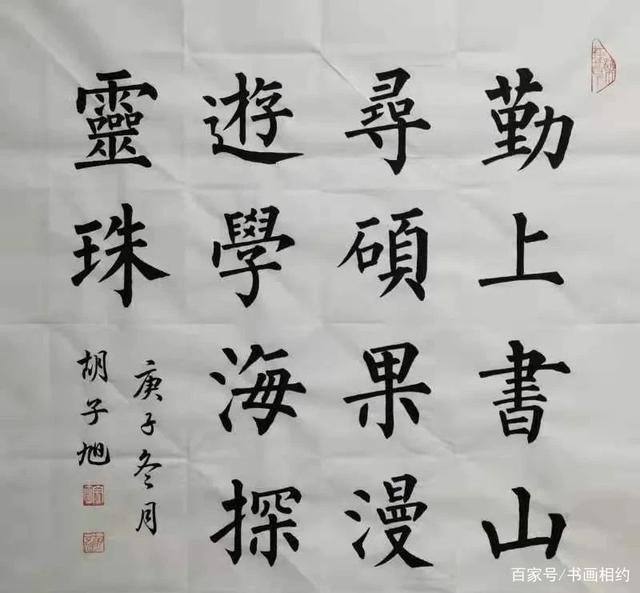 勤上書山
尋碩果漫
遊學海探
靈珠
庚子冬月
胡子旭
百家号/书画相约